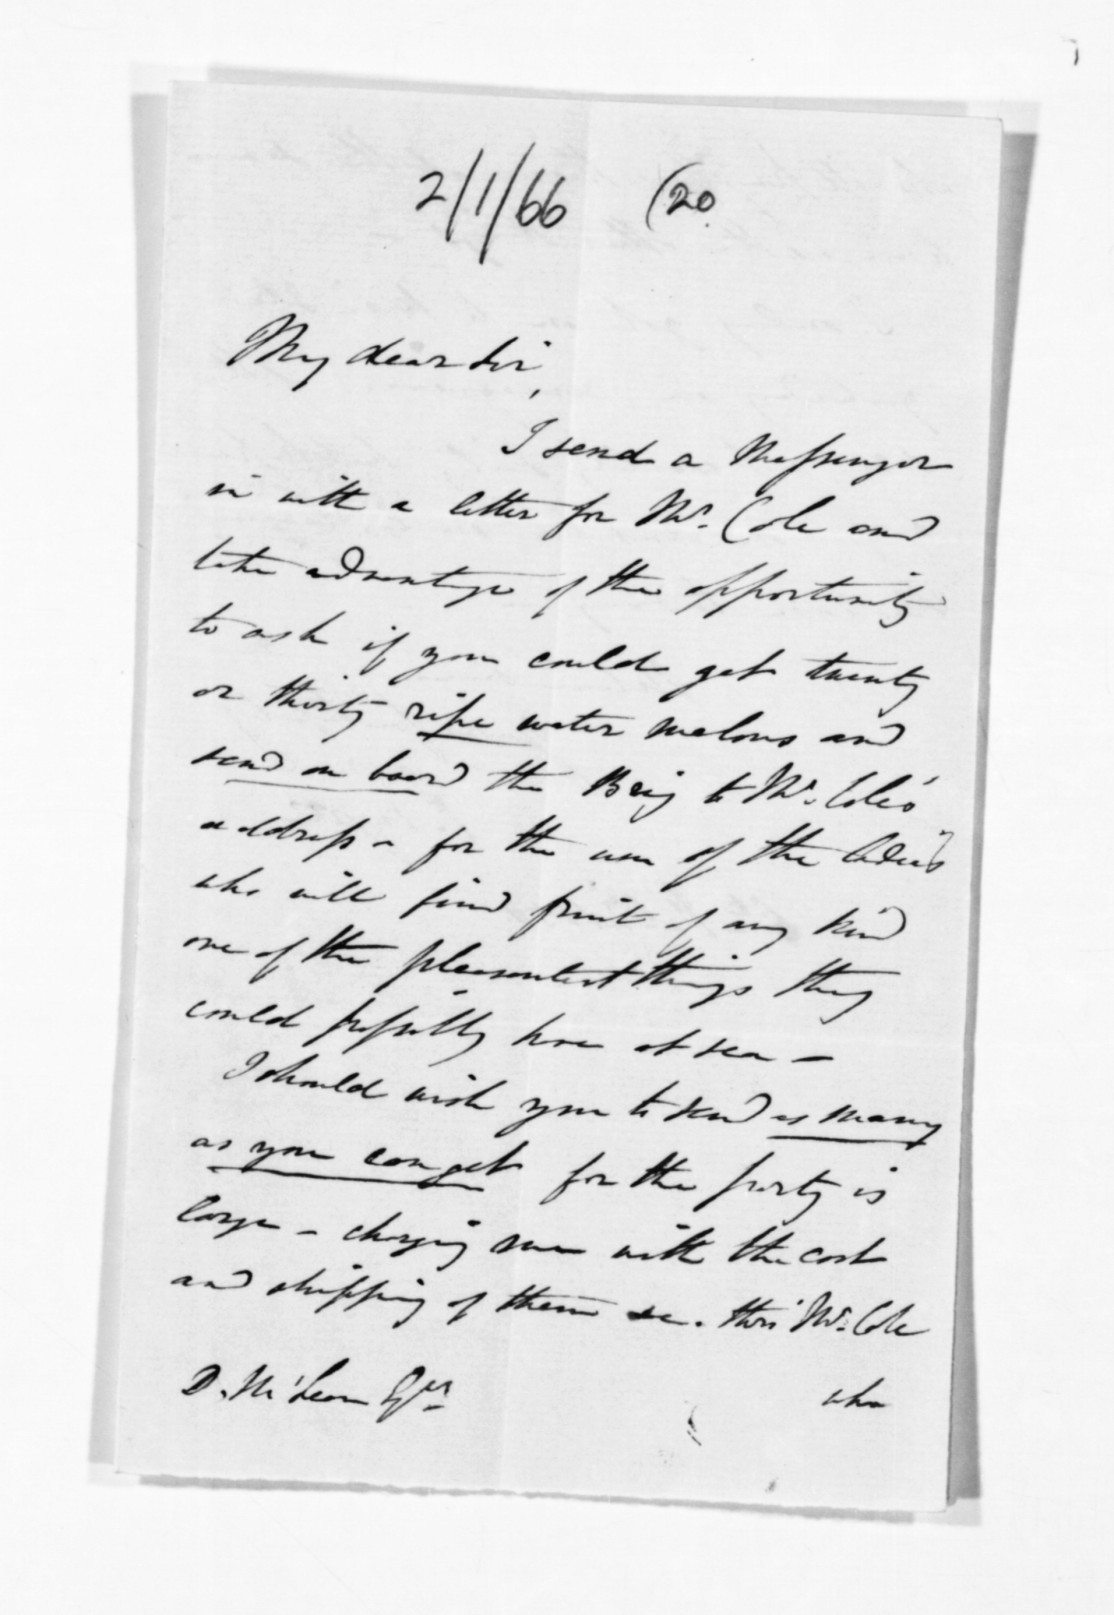 2/1/66 (20.
My dear Sir,
I send a Messenger
in with a letter for Mr. Cole and
take advantage of the opportunity
to ask if you could get twenty
or thirty ripe water melons and
send on board the Brig to Mr. Cole's
address - for the use of the ladies
who will find fruit of any kind
one of the pleasantest things they
could possibly have at sea -
I should wish you to send as many
as you can get for the party is
large - charging me with the cost
and shipping of them &c. thro' Mr. Cole
D. McLean Esqr. who